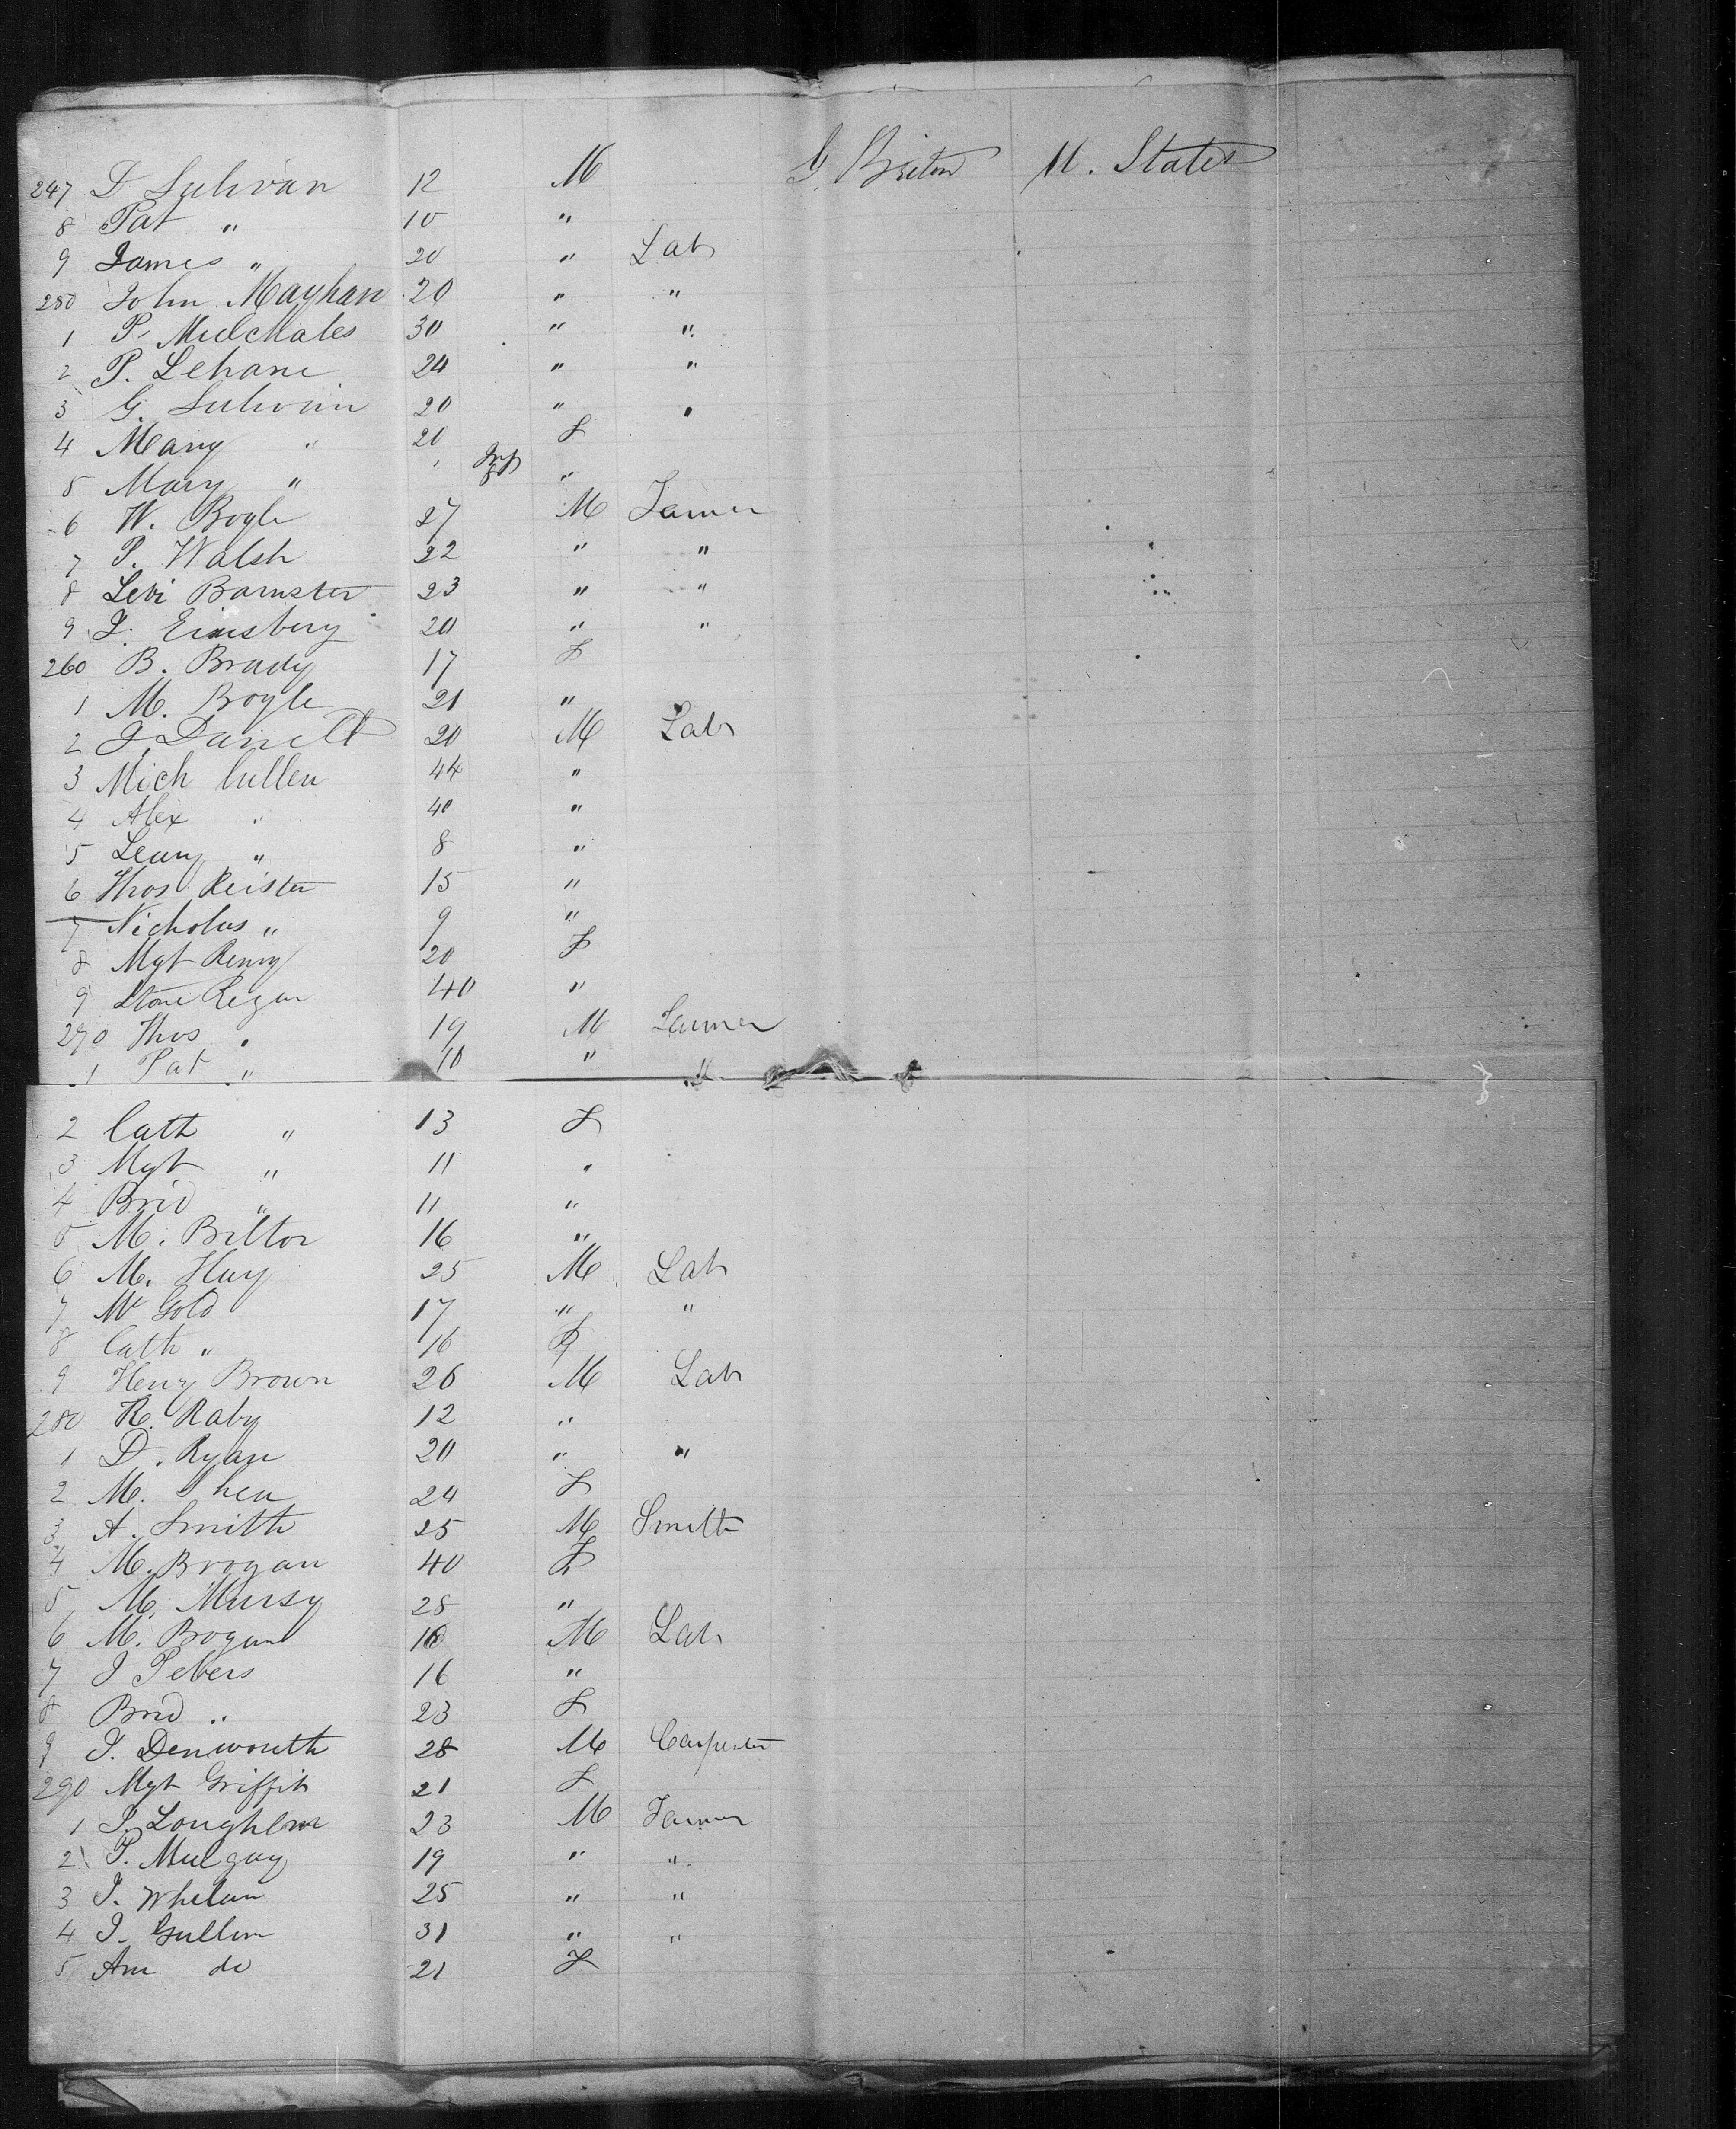 247 D Sulivan 12 M G. Briton U. States
8 Pat " 10 "
9 James " 20 " Lab
250 John Mayhan 20 " "
1 P. 30 " "
2 P. Lehane 24 " "
3 G. Sulivan 20 " "
4 Mary " 20 F
5 Mary " Inf "
6 W. Bogle 27 M Farmer
7 P. Walsh 22 " "
8 Levi Barnster 23 " "
9 20 " "
260 B. Brady 17 F
1 M. Boyle 21 "
2 J. 20 M Lab
3 Mich Cullen 44 "
4 Alex " 40 "
5 Leary " 8 "
6 Thos Reister 15 "
7 Nicholus " 9 "
8 Mgt 20 F
9 Regan 40 "
270 Thos " 19 M Farmer
1 Pat " 10 " "
2 Cath " 13 F
3 Mgt " 11 "
4 Brid " 11 "
5 M. 16 "
6 M. 25 M Lab
7 M Gold 17 " "
8 Cath " 16 F
9 Henry Brown 26 M Lab
280 R. Raby 12 "
1 D. Ryan 20 " "
2 M. Shea 24 F
3 A. Smith 25 M Smith
4 M. Brogan 40 F
5 M. 28 "
6 M. Brogan M Lab
7 J Peters 16 "
8 Brid " 23 F
9 J. Denworth 28 M Carpenter
290 Mgt Griffith 21 F
1 23 M Farmer
2 P. 19 " "
3 J. Whelan 25 " "
4 J. 31 " "
5 Ann do 21 F